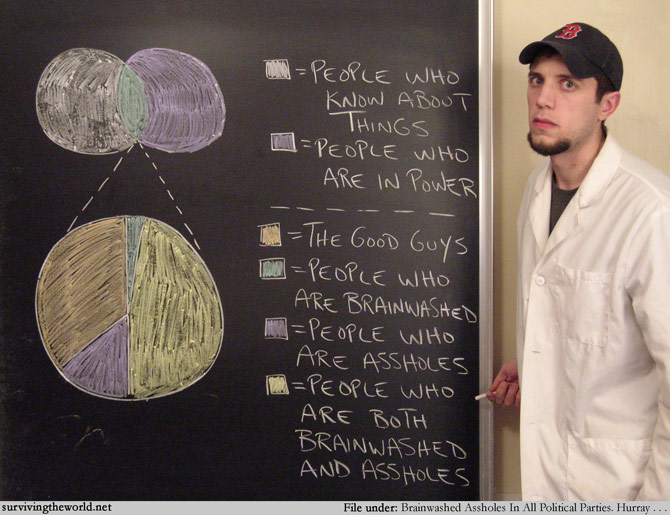 B
= PEOPLE WHO
KNOW ABOUT
THINGS
= PEOPLE WHO
ARE IN POWER
= THE GOOD GUYS
= PEOPLE WHO
ARE BRAINWASHED
= PEOPLE WHO
ARE ASSHOLES
= PEOPLE WHO
ARE BOTH
BRAINWASHED
AND ASSHOLES
survivingtheworld.net
File under: Brainwashed Assholes In All Political Parties. Hurray . . .